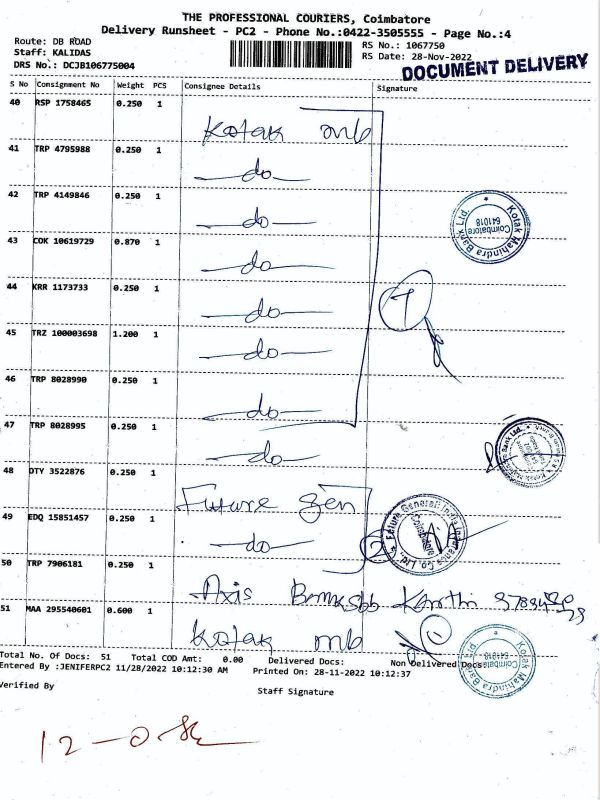 THE PROFESSIONAL COURIERS, Coimbatore
Delivery Runsheet - PC2 - Phone No.:0422-3505555 - Page No.:4
Route: DB ROAD
Staff: KALIDAS
DRS No.: DCJB106775004
RS No.: 1067750
RS Date: 28-Nov-2022
DOCUMENT DELIVERY
S No Consignment No Weight PCS Consignee Details Signature
40 RSP 1758465 0.250 1 Kotak mb
41 TRP 4795988 0.250 1 do
42 TRP 4149846 0.250 1 do
Kotak Mahindra Bank Ltd. * Coimbatore 641018
43 COK 10619729 0.870 1 do
44 KRR 1173733 0.250 1 do
7
45 TRZ 100003698 1.200 1 do
46 TRP 8028990 0.250 1 do
47 TRP 8028995 0.250 1 do
48 DTY 3522876 0.250 1 Future Gen
49 EDQ 15851457 0.250 1 do
2
Future Generali India Insurance Co. Ltd. * Coimbatore
50 TRP 7906181 0.250 1 Axis Bank Karthi
51 MAA 295540601 0.600 1 Kotak mb
Kotak Mahindra Bank Ltd. Coimbatore 641018
Total No. Of Docs: 51 Total COD Amt: 0.00 Delivered Docs: Non Delivered Docs:
Entered By :JENIFERPC2 11/28/2022 10:12:30 AM Printed On: 28-11-2022 10:12:37
Verified By
Staff Signature